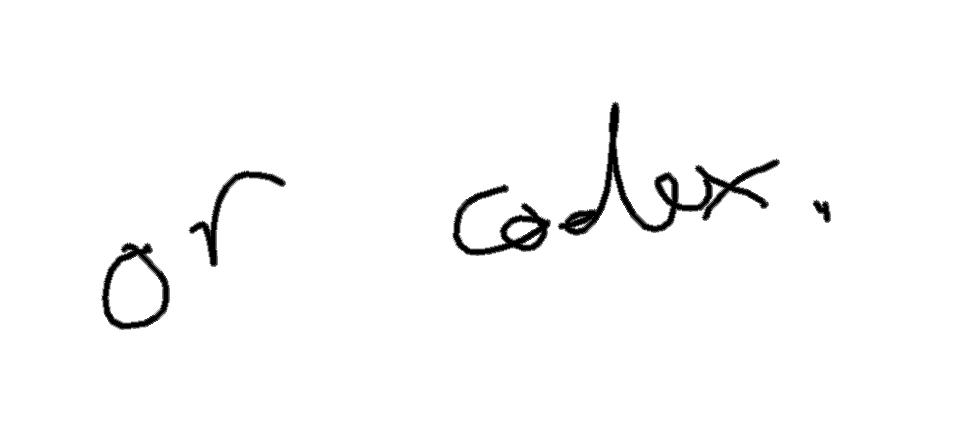 or codex.